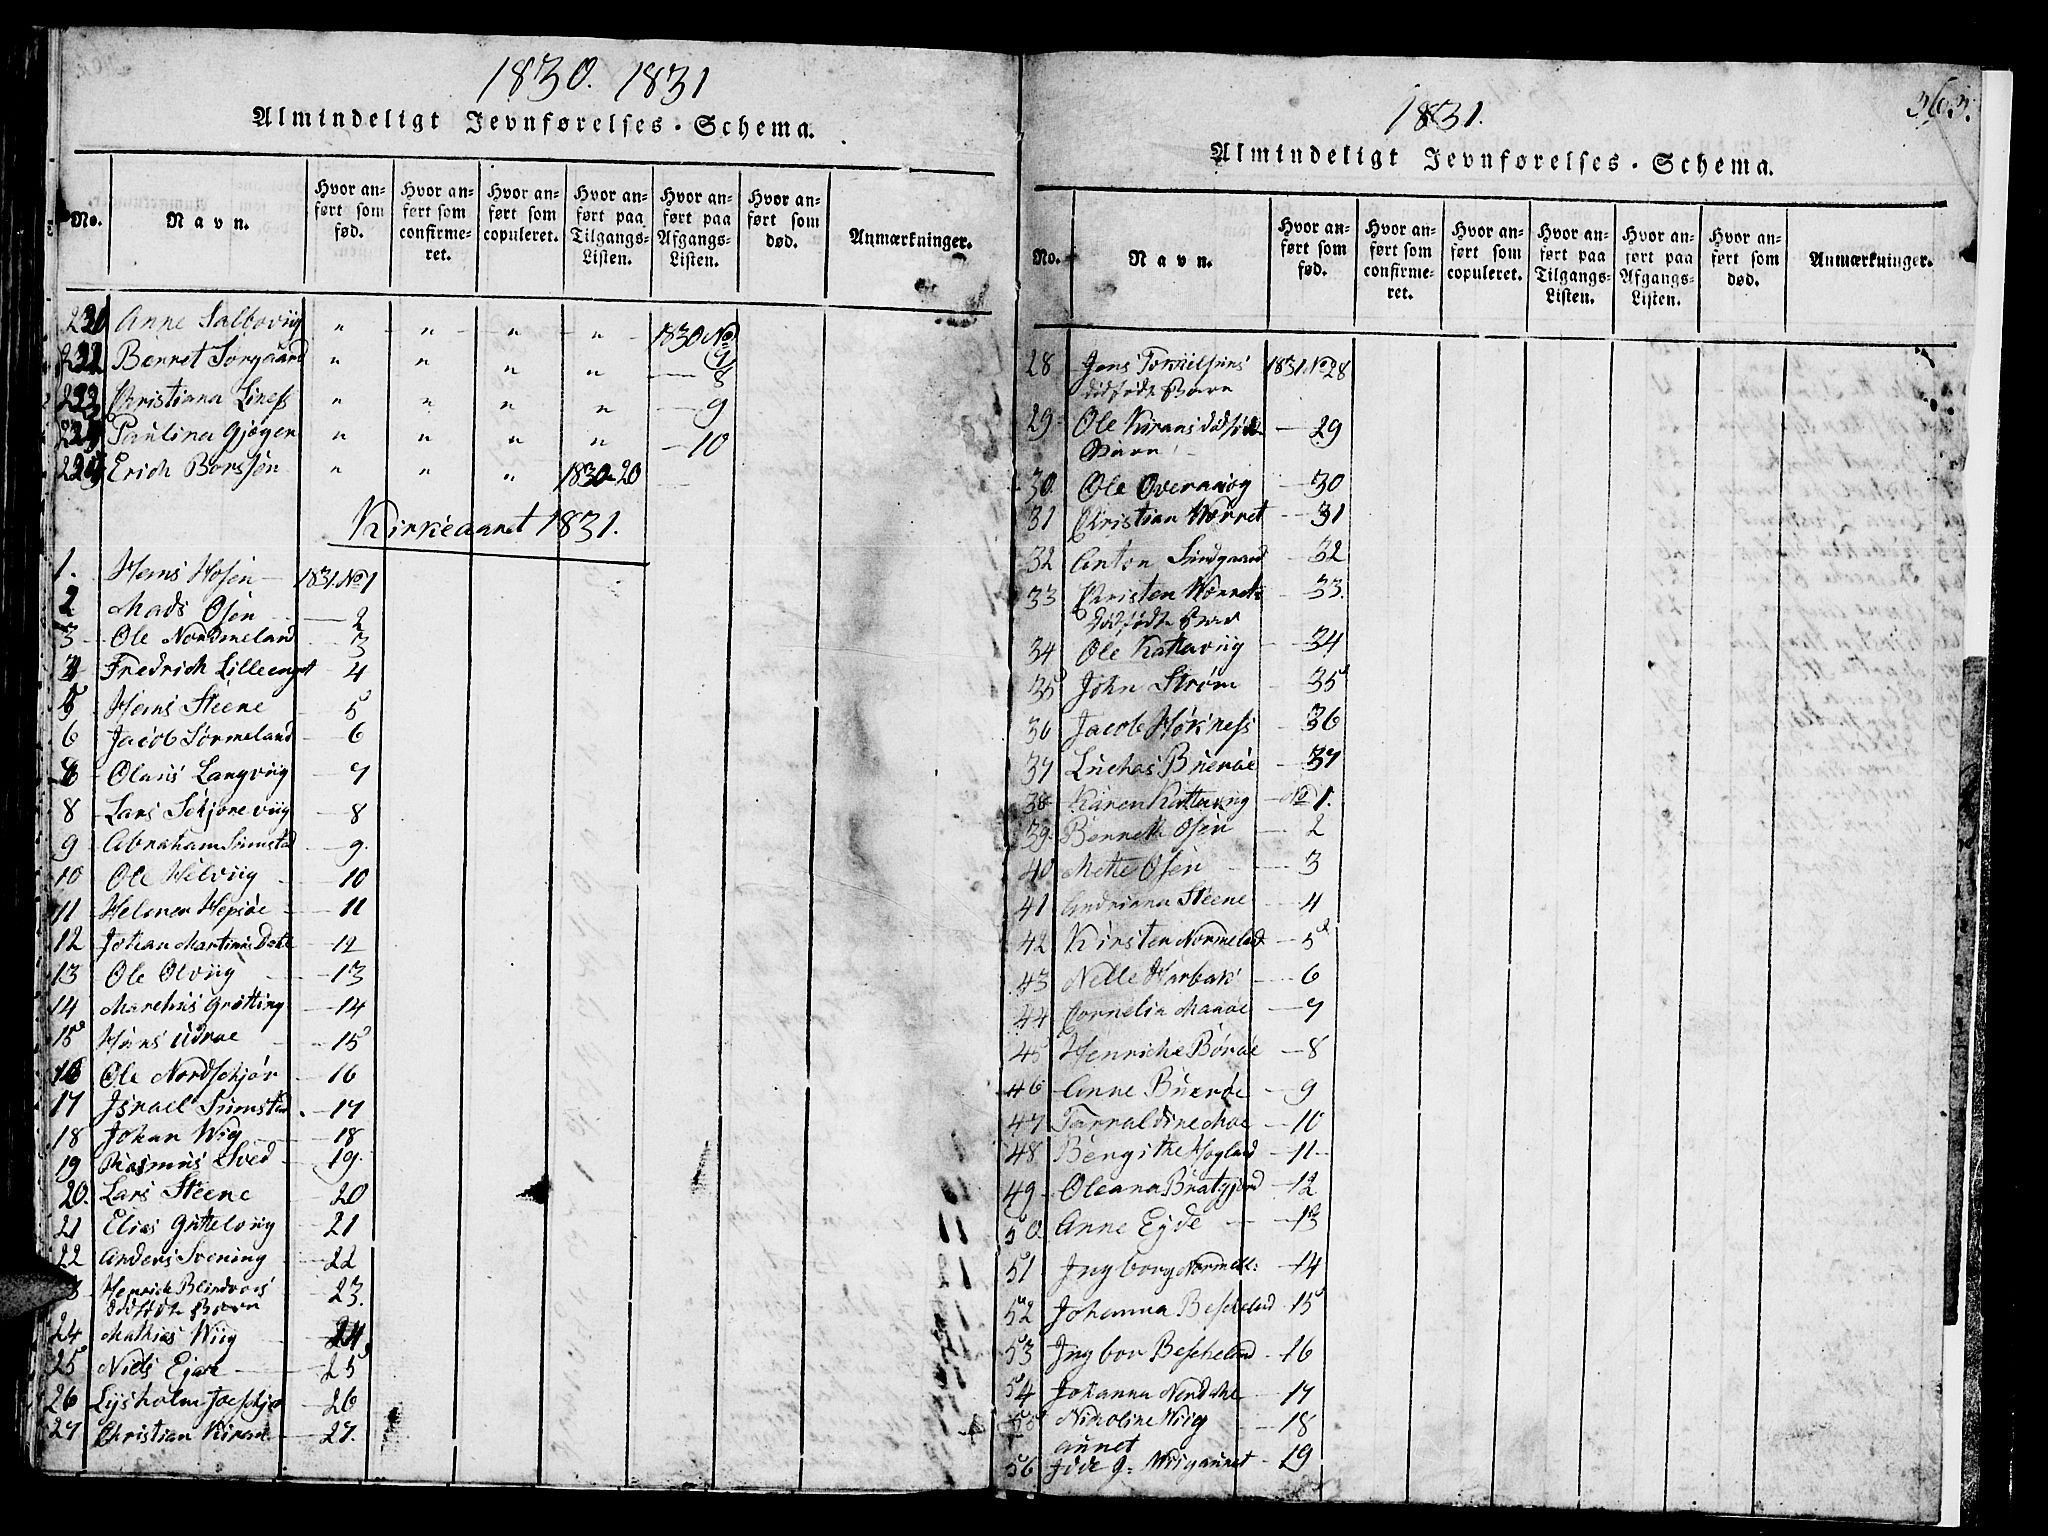 1830. 1831
Almindeligt Jevnførelses-Schema.
No.
Navn.
Hvor anført som fød.
Hvor anført som confirmeret.
Hvor anført som copuleret.
Hvor anført paa Tilgangs-Listen.
Hvor anført paa Afgangs-Listen.
Hvor anført som død.
Anmærkninger.
Anne Salboviig " " " " 1830 No
Berret Sørgaard " " " " — 8
Christiana Liness " " " " — 9
Paulina Gjøgen " " " " — 10
Erich Børssøn " " " 1830-20
Kirkeaaret 1831.
1. Hans Hosen 1831. No 1
2 Mads Osen — 2
3 Ole Nordmeland 3
4 Fredrich Lilleenget 4
5 Hans Steene 5
6 Jacob Sørmeland 6
Olaus Langviig 7
8 Lars Schjøreviig 8
9 Abraham Sumstad 9.
10 Ole Helviig 10
11 Helmer Hepsøe 11
12 Johan Martinus 12
13 Ole Olviig 13
14 Marchus Grøtting 14
15 Hans Udroe 15
16 Ole Nordschjør 16
17 Israel Sumstad 17
18 Johan Wiig 18
19 Rasmus Sved 19.
20. Lars Steene 20
21 Elias Gittelviig 21
22 Anders Svening 22
Henrich
dødfødte Barn 23.
24 Mathias Wiig 24
25 Niels 25
26 Lysholm 26
27 Christian Kiran 27.
363.
1831.
Almindeligt Jevnførelses-Schema.
No.
Navn.
Hvor anført som fød.
Hvor anført som confirmeret.
Hvor anført som copuleret.
Hvor anført paa Tilgangs-Listen.
Hvor anført paa Afgangs-Listen.
Hvor anført som død.
Anmærkninger.
28 Jens Torkelsens 1831 No 28
dødfødte Barn
29 Ole Kirans dødfødte 29
Barn
30. Ole 30
31 Christian Worret 31
32 Anton Sundgaard 32
33 Christen Worrets 33.
dødfødte Barn
34 Ole Katteviig 34
35 John Strøm 35
36 Jacob Høkness 36
37 Luchas Buerøe 37
38 Karen Katteviig No 1.
39. Berreth Osen 2
40 Mette Osen 3
41 Andriana Steene 4
42 Kirsten Normeland 5
43 Nelle Harbak 6
44 Cornelia Manøe 7
45 Henriche Børøe 8
46 Anne Buerøe 9
47 Tarraldine Moe 10
48 Bengithe Hogland 11
49 Oleana Bratgjerd 12
50. Anne Eyde 13
51 Ingborg Normell: 14
52 Johanna Bescheland 15
53 Ingbor Bescheland 16
54 Johanna 17
55 Nicholine Wiig 18
aunet
56 Wiigaunet 19